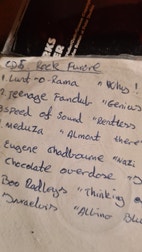 KS
CD5 Rock Furore
1. Lunt-O-Rama "
2. Teenage Fanclub "Genius
3. Speed of Sound "Rentless
Meduza "Almost there"
Eugene Chadbourne "Nazi
Chocolate overdose "
Boo Radleys "Thinking o
"Albino Blu